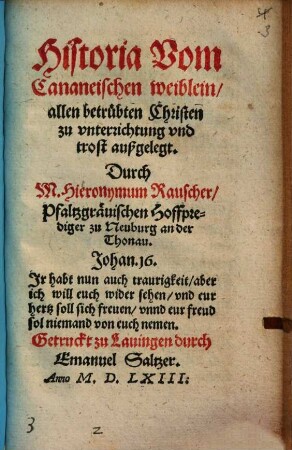 3
Historia Vom
Cananeischen weiblein/
allen betrübten Christen
zu vnterrichtung vnd
trost außgelegt.
Durch
M. Hieronymum Rauscher/
Pfaltzgräuischen Hoffpre-
diger zu Neuburg an der
Thonau.
Johan. 16.
Ir habt nun auch traurigkeit/aber
ich will euch wider sehen/vnd eur
hertz soll sich freuen/vnnd eur freud
sol niemand von euch nemen.
Getruckt zu Lauingen durch
Emanuel Saltzer.
Anno M. D. LXIII:
3 2